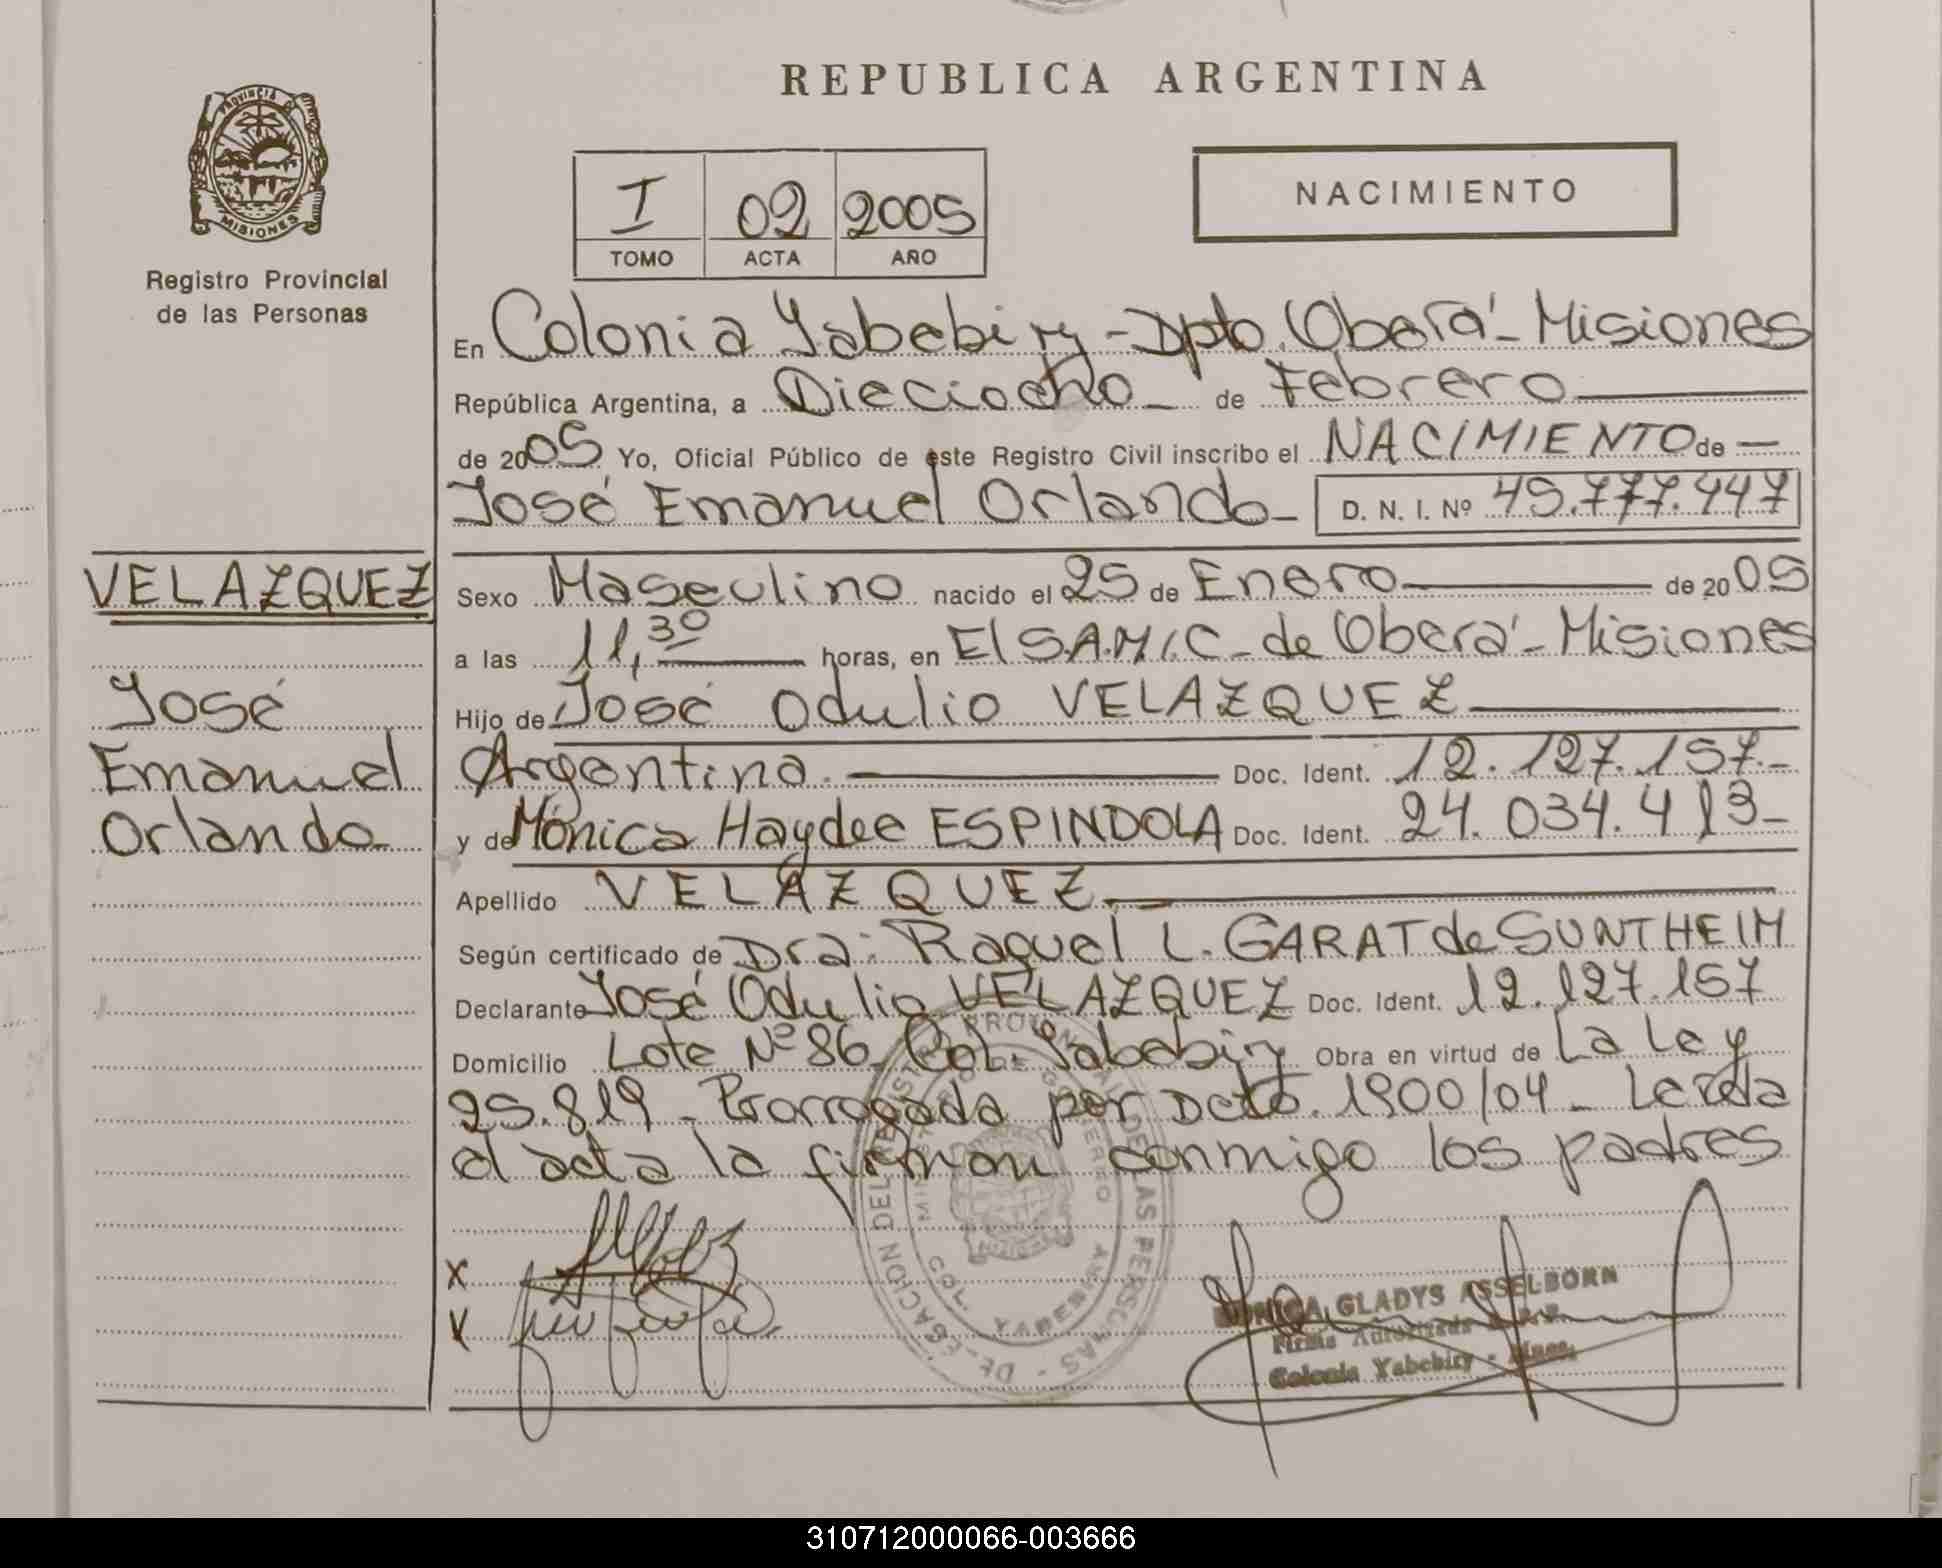 REPUBLICA ARGENTINA
PROVINCIA D
MISIONES
Registro Provincial
de las Personas
I 02 2005
TOMO ACTA AÑO
NACIMIENTO
En Colonia Yabebiry - Dpto. Oberá - Misiones
República Argentina, a Dieciocho - de Febrero
de 2005 Yo, Oficial Público de este Registro Civil inscribo el NACIMIENTO de
José Emanuel Orlando - D. N. I. Nº 45.777.447
VELAZQUEZ
José
Emanuel
Orlando
Sexo Masculino nacido el 25 de Enero de 2005
a las 11,30 horas, en El S.A.M.I.C - de Oberá - Misiones
Hijo de José Odulio VELAZQUEZ
Argentina. Doc. Ident. 12.127.157.-
y de Mónica Haydee ESPINDOLA Doc. Ident. 24.034.413-
Apellido VELAZQUEZ
Según certificado de Dra: Raquel L. GARAT de SUNTHEIM
Declarante José Odulio VELAZQUEZ Doc. Ident. 12.127.157
Domicilio Lote Nº 86 Col. Yabebiry Obra en virtud de La Ley
25.819 - Prorrogada por Dcto. 1900/04 - Leída
el acta la firman conmigo los padres
X
GLADYS ASSELBORN
Firma Autorizada
Colonia Yabebiry -
COL. YABEBIRY
310712000066-003666